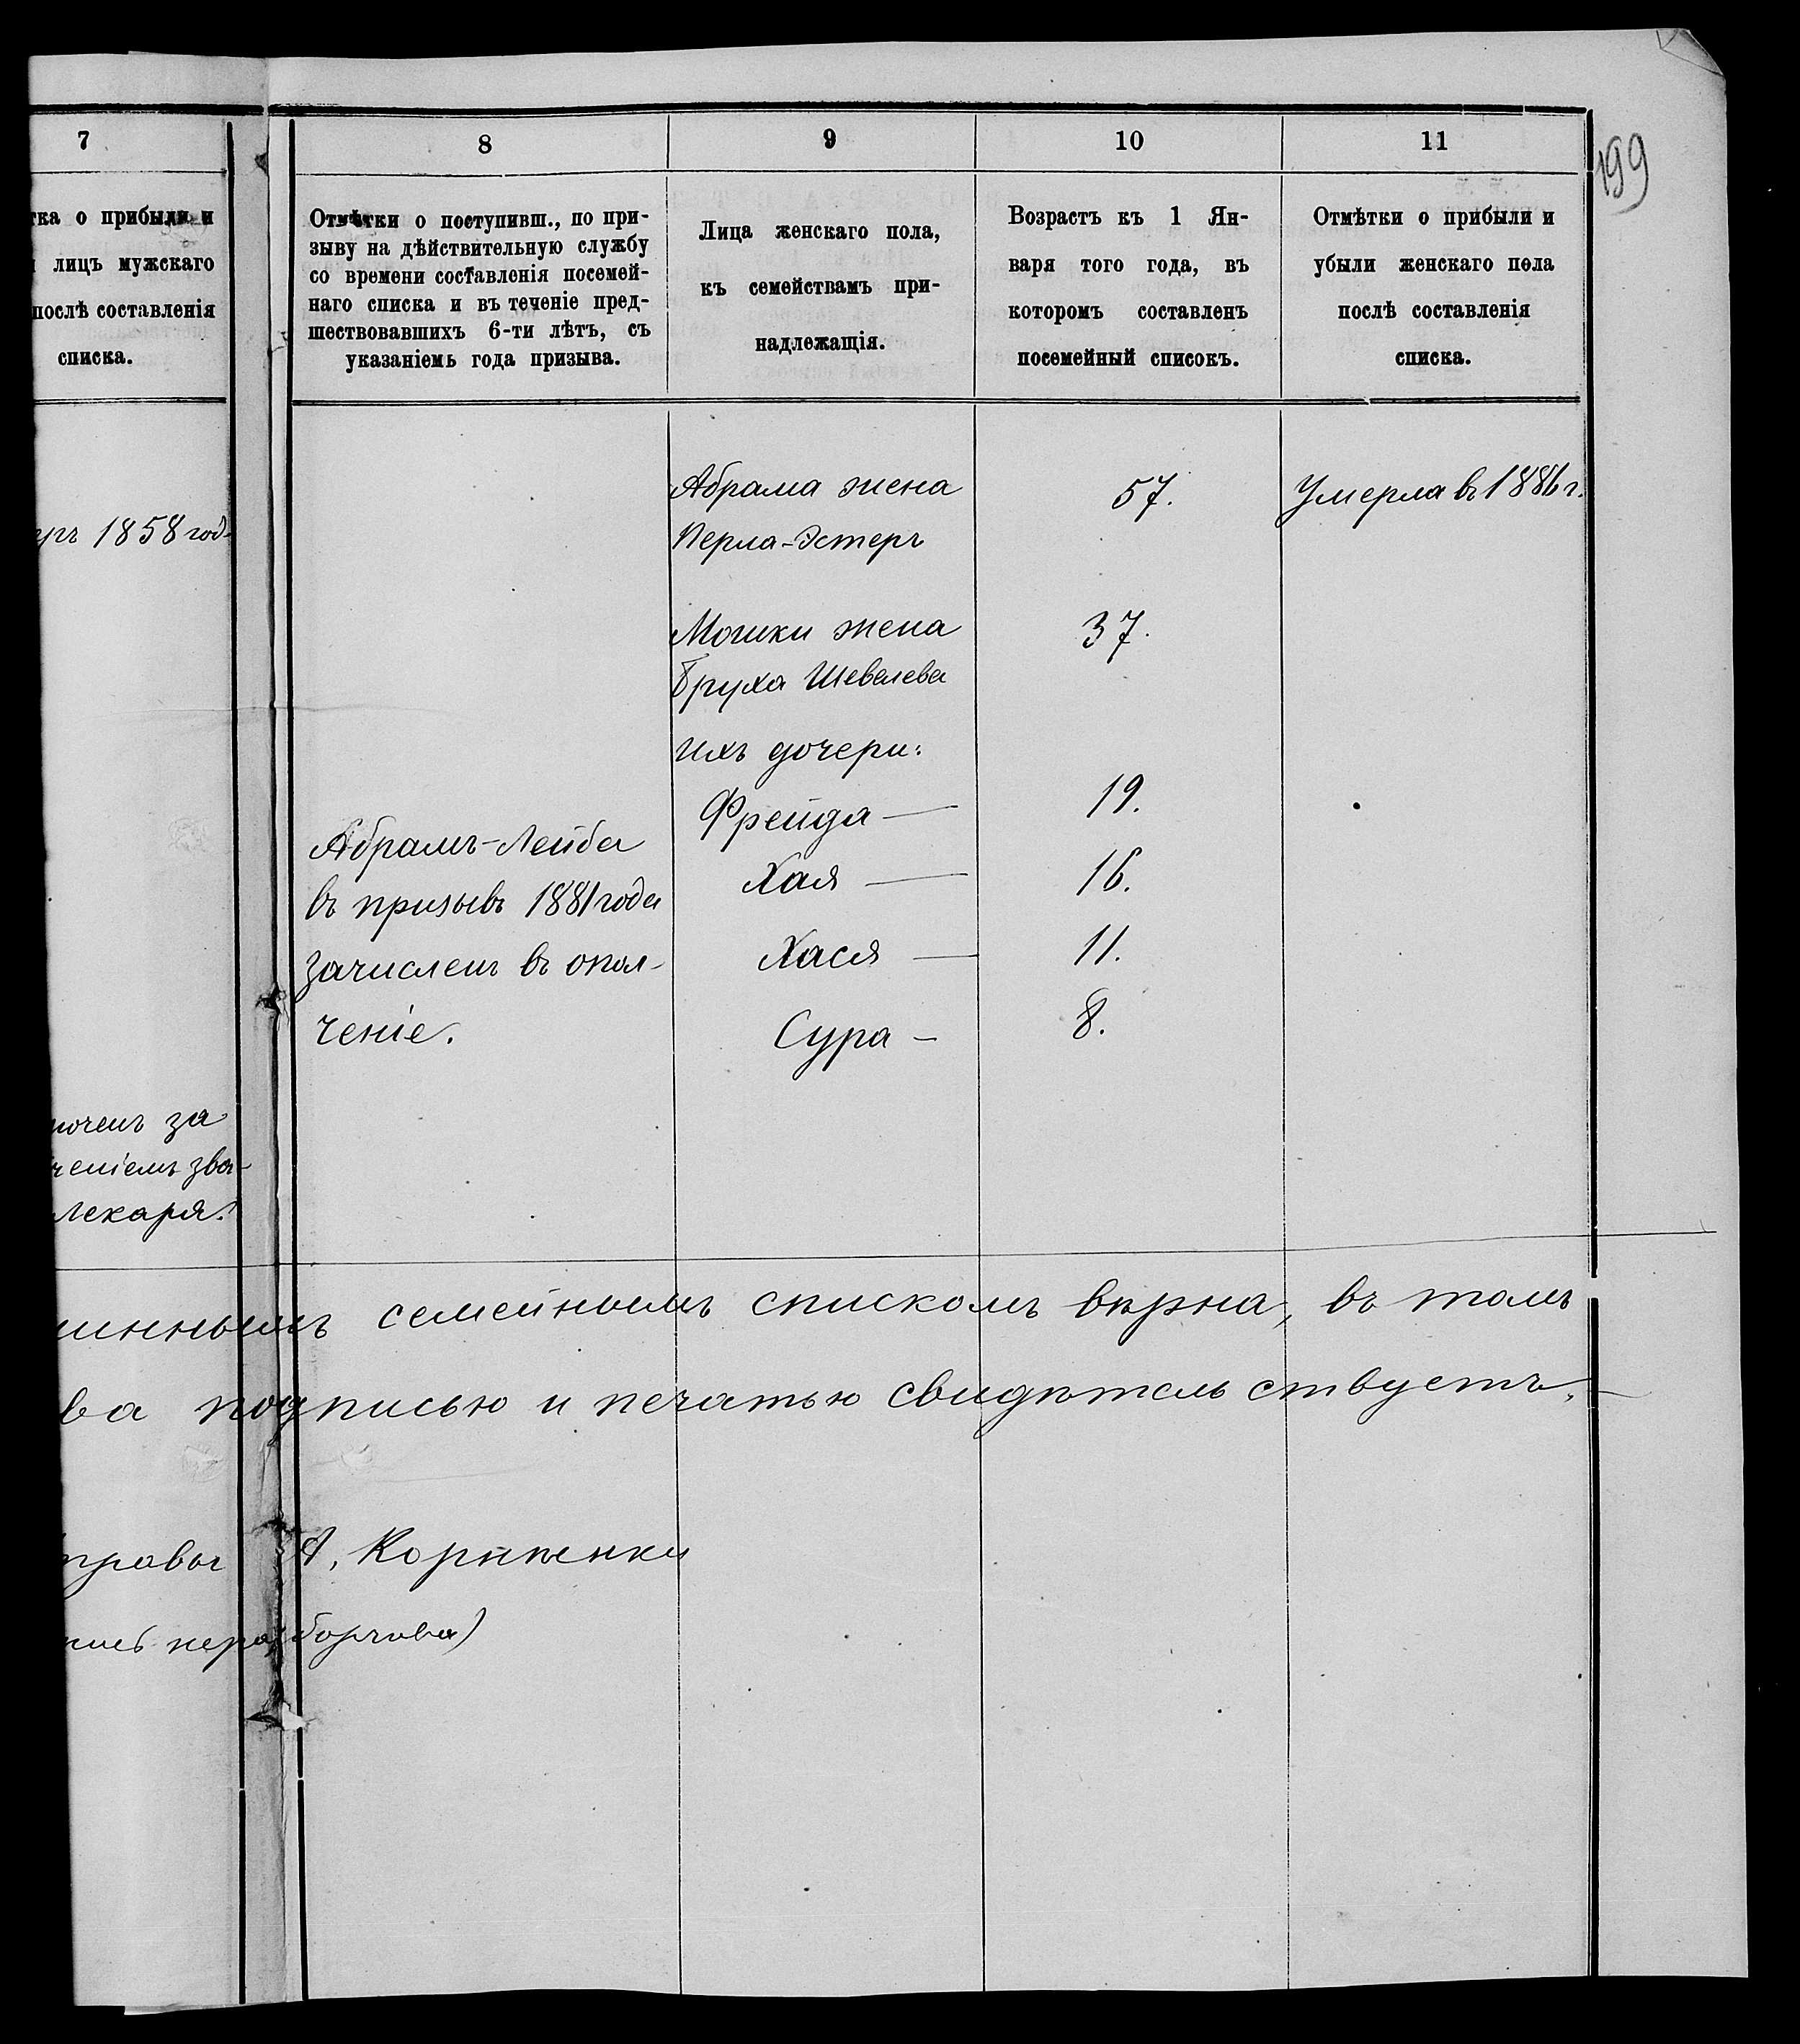 199
7
8
9
10
11
тка о прибыли и
лицъ мужскаго
послѣ составленія
списка.
Отмѣтки о поступивш., по при-
зыву на дѣйствительную службу
со времени составленія посемей-
наго списка и въ теченіе пред-
шествовавшихъ 6-ти лѣтъ, съ
указаніемъ года призыва.
Лица женскаго пола,
къ семействамъ при-
надлежащія.
Возрастъ къ 1 Ян-
варя того года, въ
которомъ составленъ
посемейный списокъ.
Отмѣтки о прибыли и
убыли женскаго пола
послѣ составленія
списка.
1858 год
Абрама жена
Перла-Эстеръ
57.
Умерла въ 1886 г.
Мошки жена
Бруха Шевелева
37.
ихъ дочери:
Фрейда — 19.
Хая — 16.
Хася — 11.
Сура — 8.
Абрамъ-Лейба
въ призывъ 1881 года
зачисленъ въ опол-
ченіе.
ченъ за
ченіемъ зва-
лекаря.
иннымъ семейнымъ спискомъ вѣрна, въ томъ
ва подписью и печатью свидѣтельствуетъ.
правы А.
пись неразборчива)